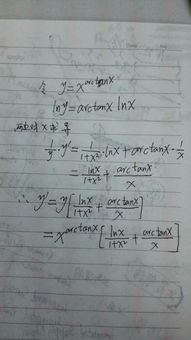 令 y=x^{arctanx}
lny=arctanx lnx
两边对x求导
\frac{1}{y}·y'=\frac{1}{1+x²}·lnx+arctanx·\frac{1}{x}
=\frac{lnx}{1+x²}+\frac{arctanx}{x}
∴ y'=y[\frac{lnx}{1+x²}+\frac{arctanx}{x}]
=x^{arctanx}[\frac{lnx}{1+x²}+\frac{arctanx}{x}]